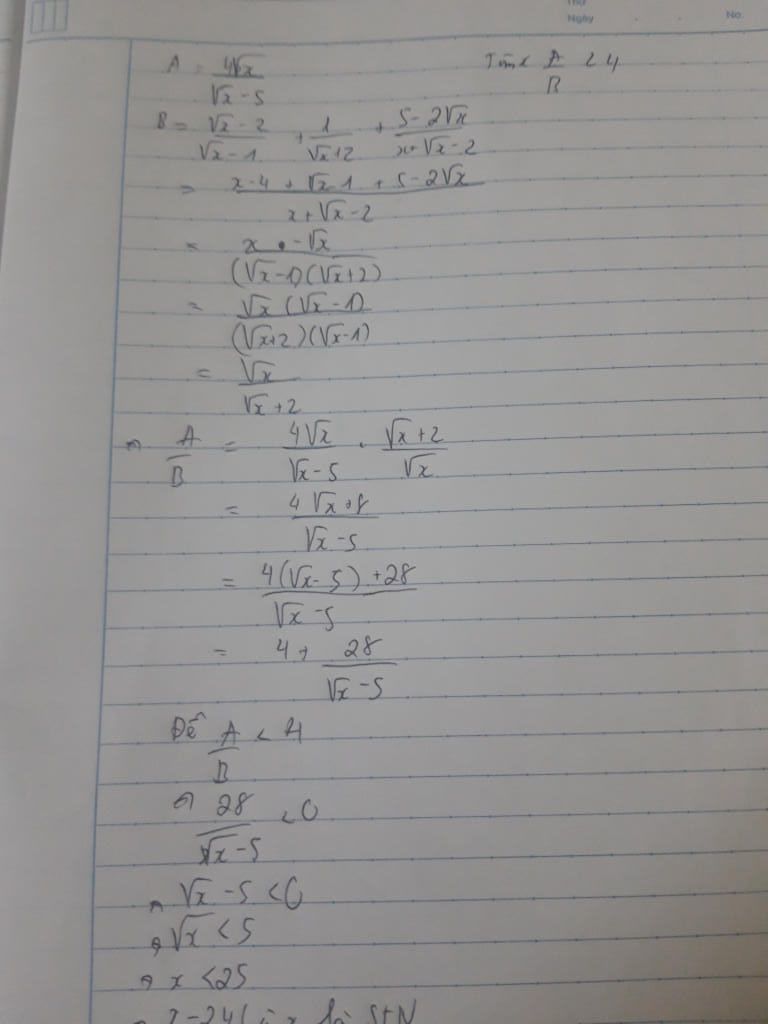 Thứ
Ngày No.
A = 4√x / √x - 5 Tìm x A/B < 4
B = √x - 2 / √x - 1 + 1 / √x + 2 + 5 - 2√x / x + √x - 2
= x - 4 + √x - 1 + 5 - 2√x / x + √x - 2
= x - √x / (√x - 1)(√x + 2)
= √x (√x - 1) / (√x + 2)(√x - 1)
= √x / √x + 2
A/B = 4√x / √x - 5 . √x + 2 / √x
= 4√x + 8 / √x - 5
= 4(√x - 5) + 28 / √x - 5
= 4 + 28 / √x - 5
Để A/B < 4
28 / √x - 5 < 0
√x - 5 < 0
√x < 5
x < 25
x là STN